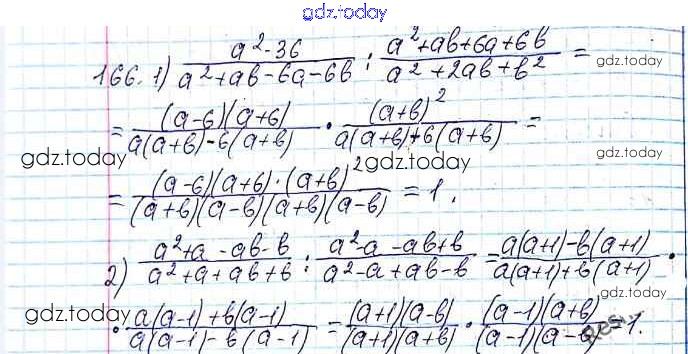 gdz.today
166. 1) (a²-36)/(a²+ab-6a-6b) : (a²+ab+6a+6b)/(a²+2ab+b²) =
gdz.today
gdz.today
= (a-6)(a+6)/(a(a+b)-6(a+b)) · (a+b)²/(a(a+b)+6(a+b)) =
gdz.today gdz.today gdz.today
= (a-6)(a+6)·(a+b)²/((a+b)(a-6)(a+b)(a-6)) = 1.
gdz.today
2) (a²+a-ab-b)/(a²+a+ab+b) : (a²-a-ab+b)/(a²-a+ab-b) = (a(a+1)-b(a+1))/(a(a+1)+b(a+1)) ·
gdz.today gdz.today gdz.today
· (a(a-1)+b(a-1))/(a(a-1)-b(a-1)) = (a+1)(a-b)/((a+1)(a+b)) · (a-1)(a+b)/((a-1)(a-b)) = 1.